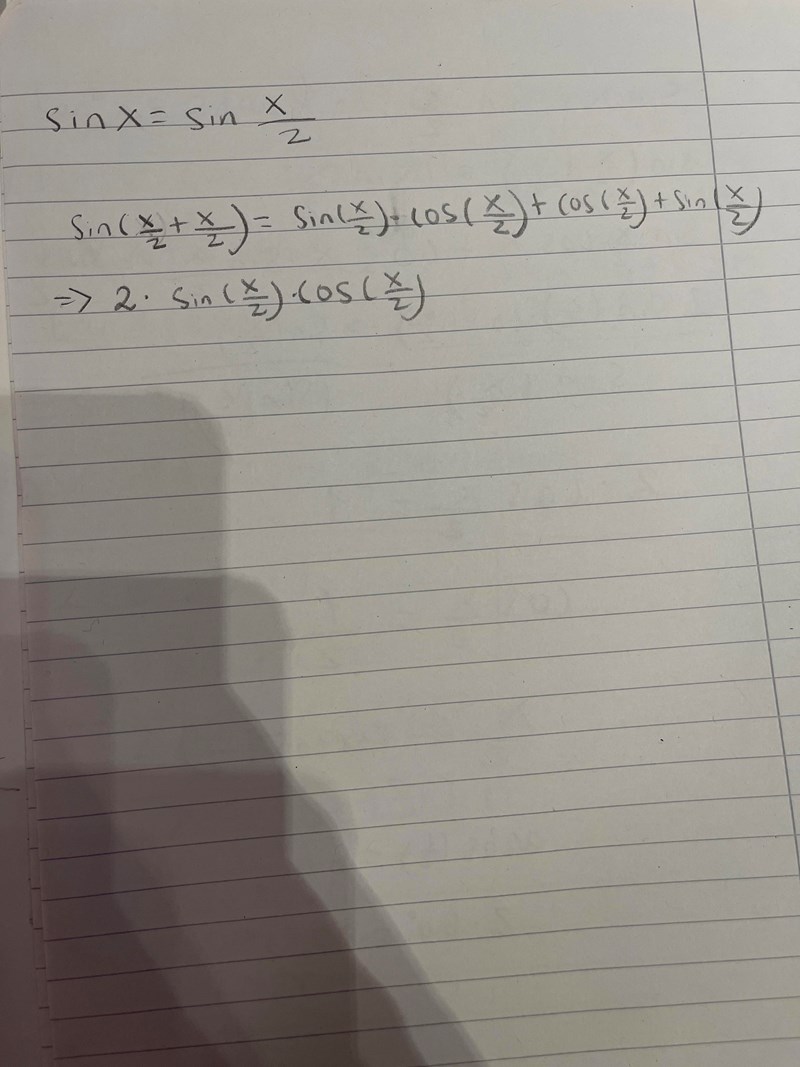 sin x = sin x/2
sin(x/2 + x/2) = sin(x/2) · cos(x/2) + cos(x/2) + sin(x/2)
=> 2 · sin(x/2) · cos(x/2)